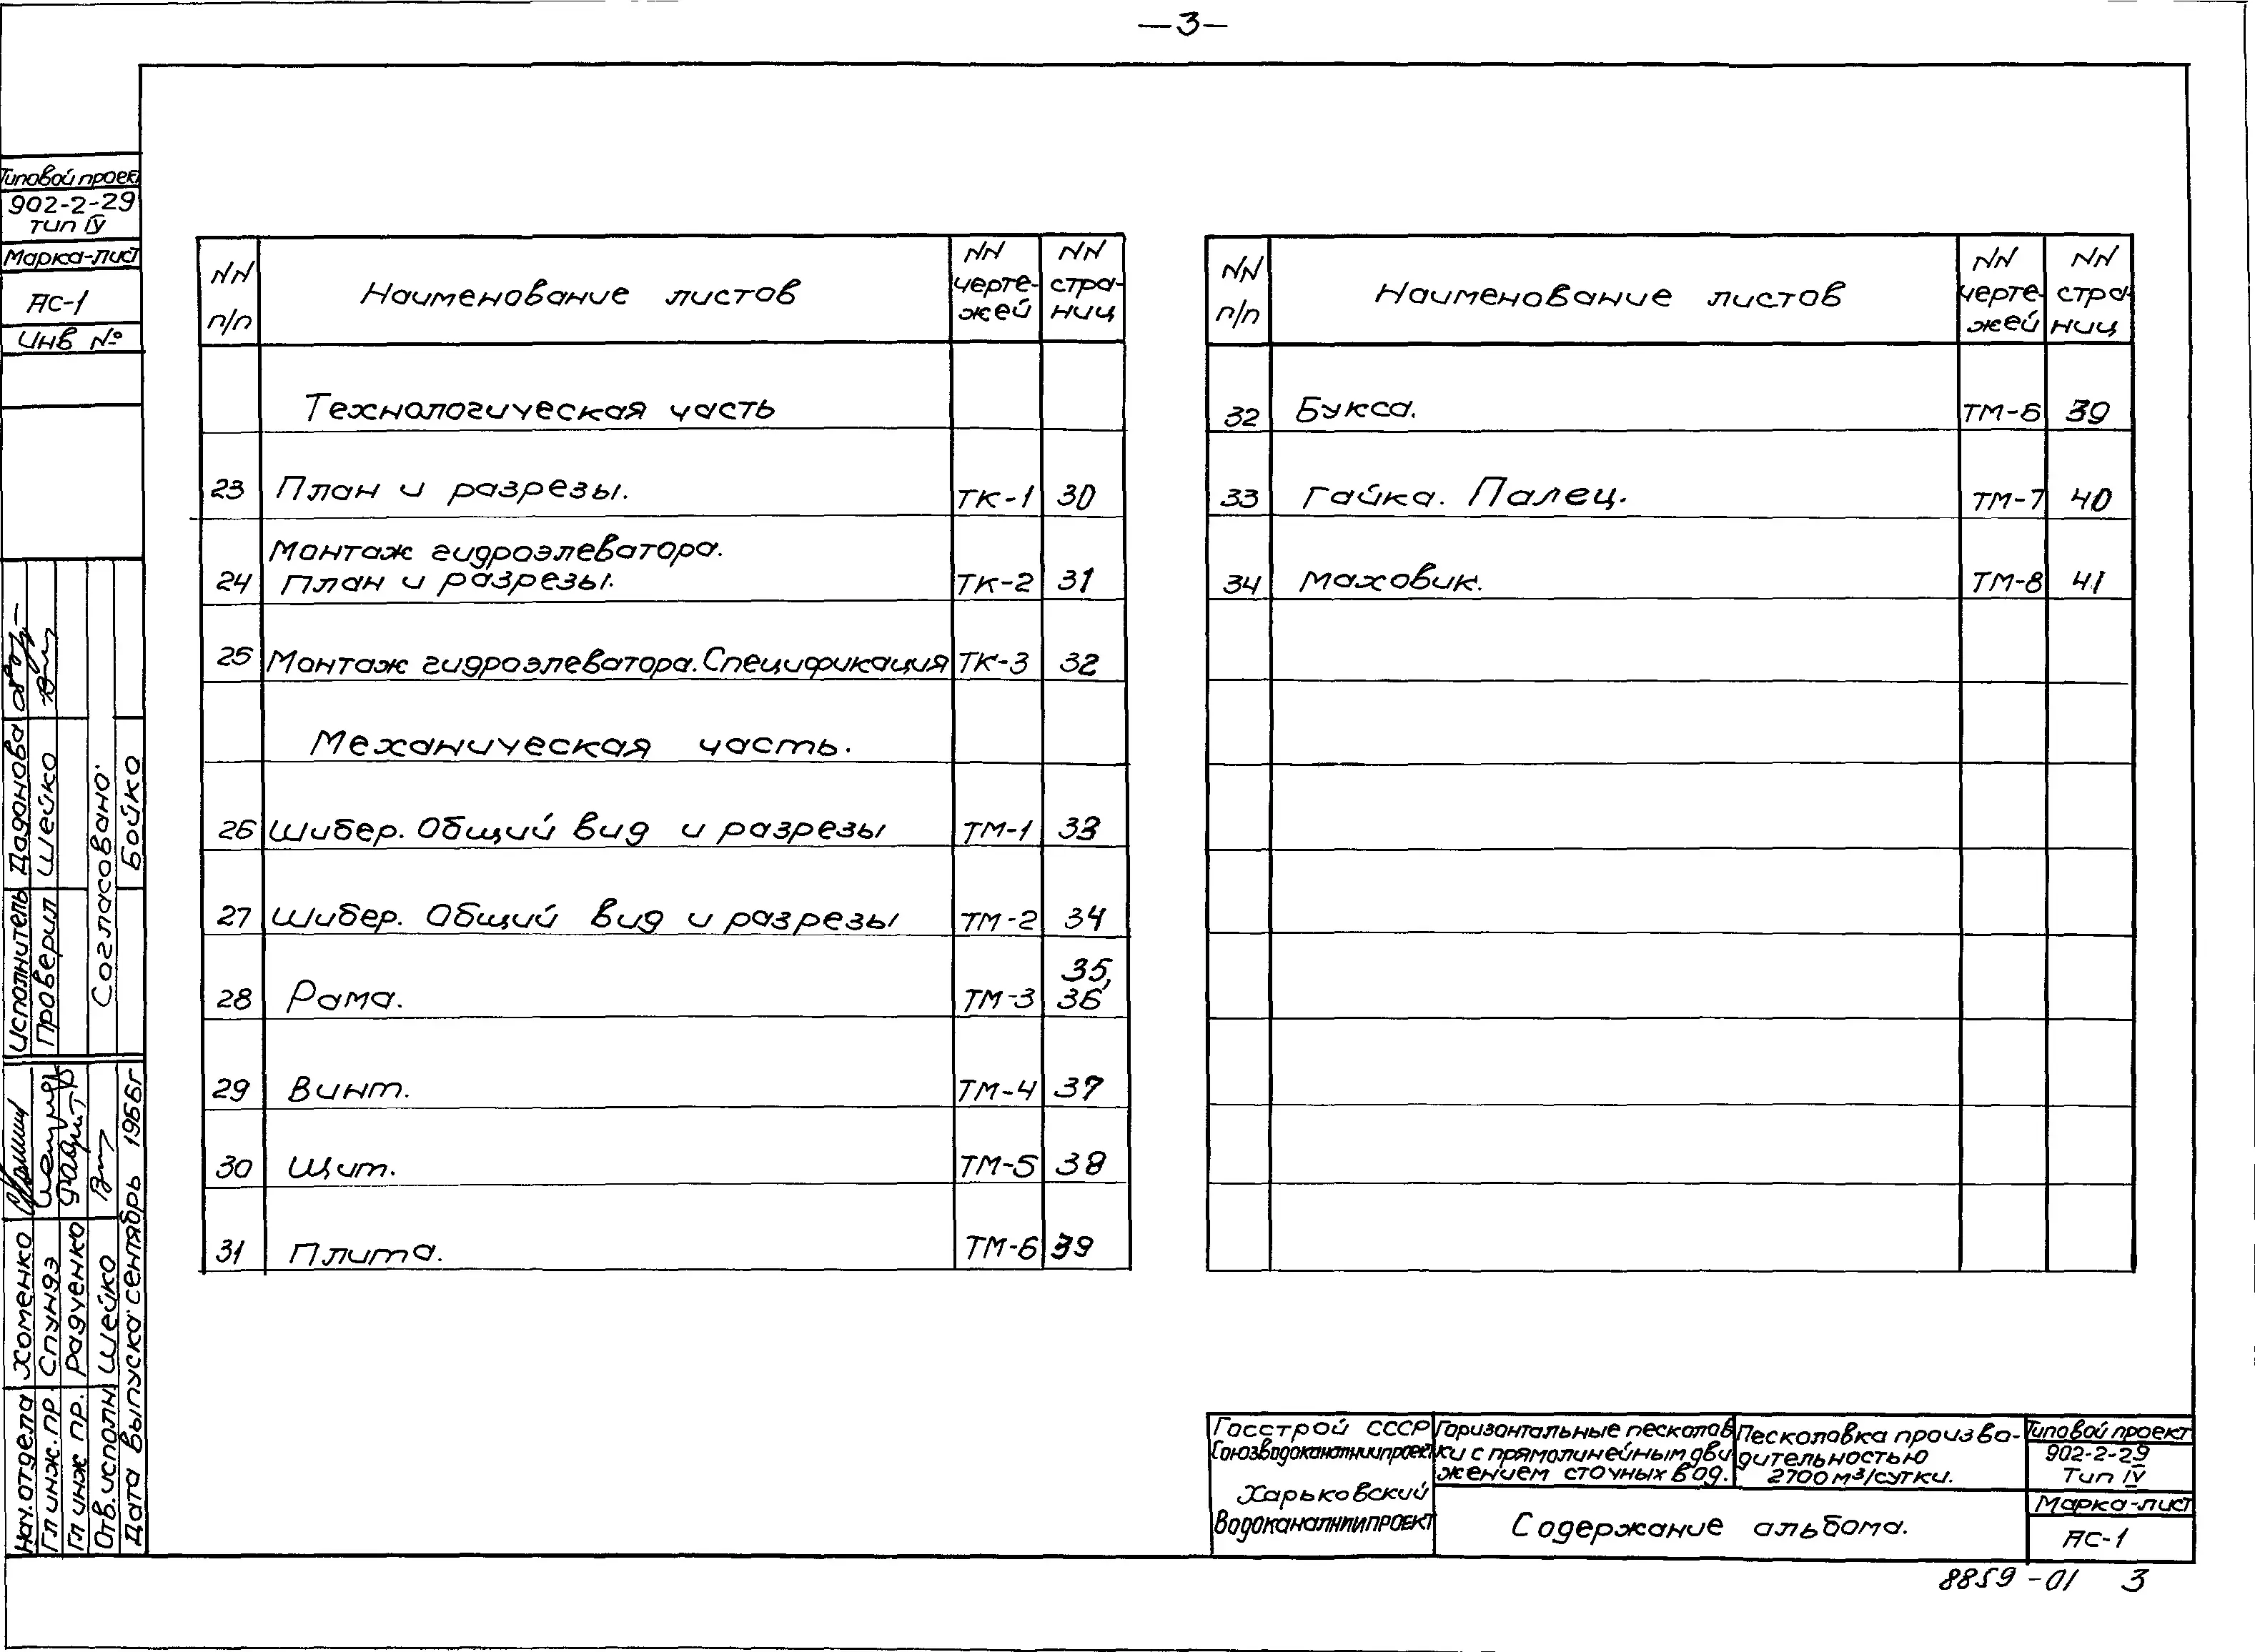 —3—
Типовой проект
902-2-29
тип IV
Марка-лист
АС-1
Инв №
NN п/п Наименование листов NN чертежей NN страниц
Технологическая часть
23 План и разрезы. ТК-1 30
24 Монтаж гидроэлеватора.
План и разрезы. ТК-2 31
25 Монтаж гидроэлеватора. Спецификация ТК-3 32
Механическая часть.
26 Шибер. Общий вид и разрезы ТМ-1 33
27 Шибер. Общий вид и разрезы ТМ-2 34
28 Рама. ТМ-3 35, 36
29 Винт. ТМ-4 37
30 Щит. ТМ-5 38
31 Плита. ТМ-6 39
NN п/п Наименование листов NN чертежей NN страниц
32 Букса. ТМ-6 39
33 Гайка. Палец. ТМ-7 40
34 Маховик. ТМ-8 41
Исполнитель Дадонова
Проверил Шейко
Согласовано:
Бойко
Нач. отдела Хоменко
Гл инж. пр. Спундэ
Гл инж пр. Радченко
Отв. исполн Шейко
Дата выпуска: сентябрь 1966г
Госстрой СССР
Союзводоканалниипроект
Харьковский
Водоканалниипроект
Горизонтальные песколов
ки с прямолинейным дви
жением сточных вод.
Песколовка произво-
дительностью
2700 м³/сутки.
Содержание альбома.
Типовой проект
902-2-29
Тип IV
Марка-лист
АС-1
8859-01 3